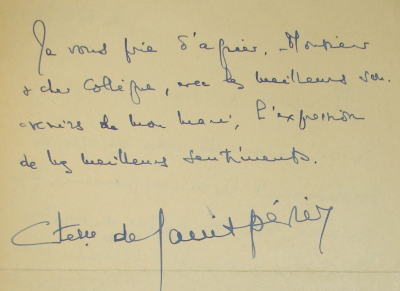 Je vous prie d'agréer, Monsieur
& cher Collègue, avec les meilleurs sou-
venirs de mon mari, l'expression
de mes meilleurs sentiments.
Ctesse de Saint-Périer